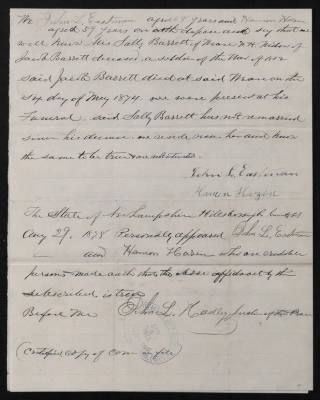 We John L. Eastman aged 58 years and Harmon Hazen
aged 59 years on oath depose and say that we
well knew Mrs Sally Barrett of Weare N.H. Widow of
Jacob Barrett deceased, a soldier of the War of 1812
Said Jacob Barrett died at said Weare on the
day of May 1874. we were present at his
Funeral. said Sally Barrett has not remarried
since his decease. we reside near her and know
the same to be true
John L. Eastman
Harmon Hazen
The State of New Hampshire Hillsborough
Aug 29, 1878 Personally appeared John L. Eastman
and Harmon Hazen who are credible
persons made oath that the above affidavit by them
subscribed is true
Before me John L. Hadley Justice of the Peace
(Certified Copy of Com on file)